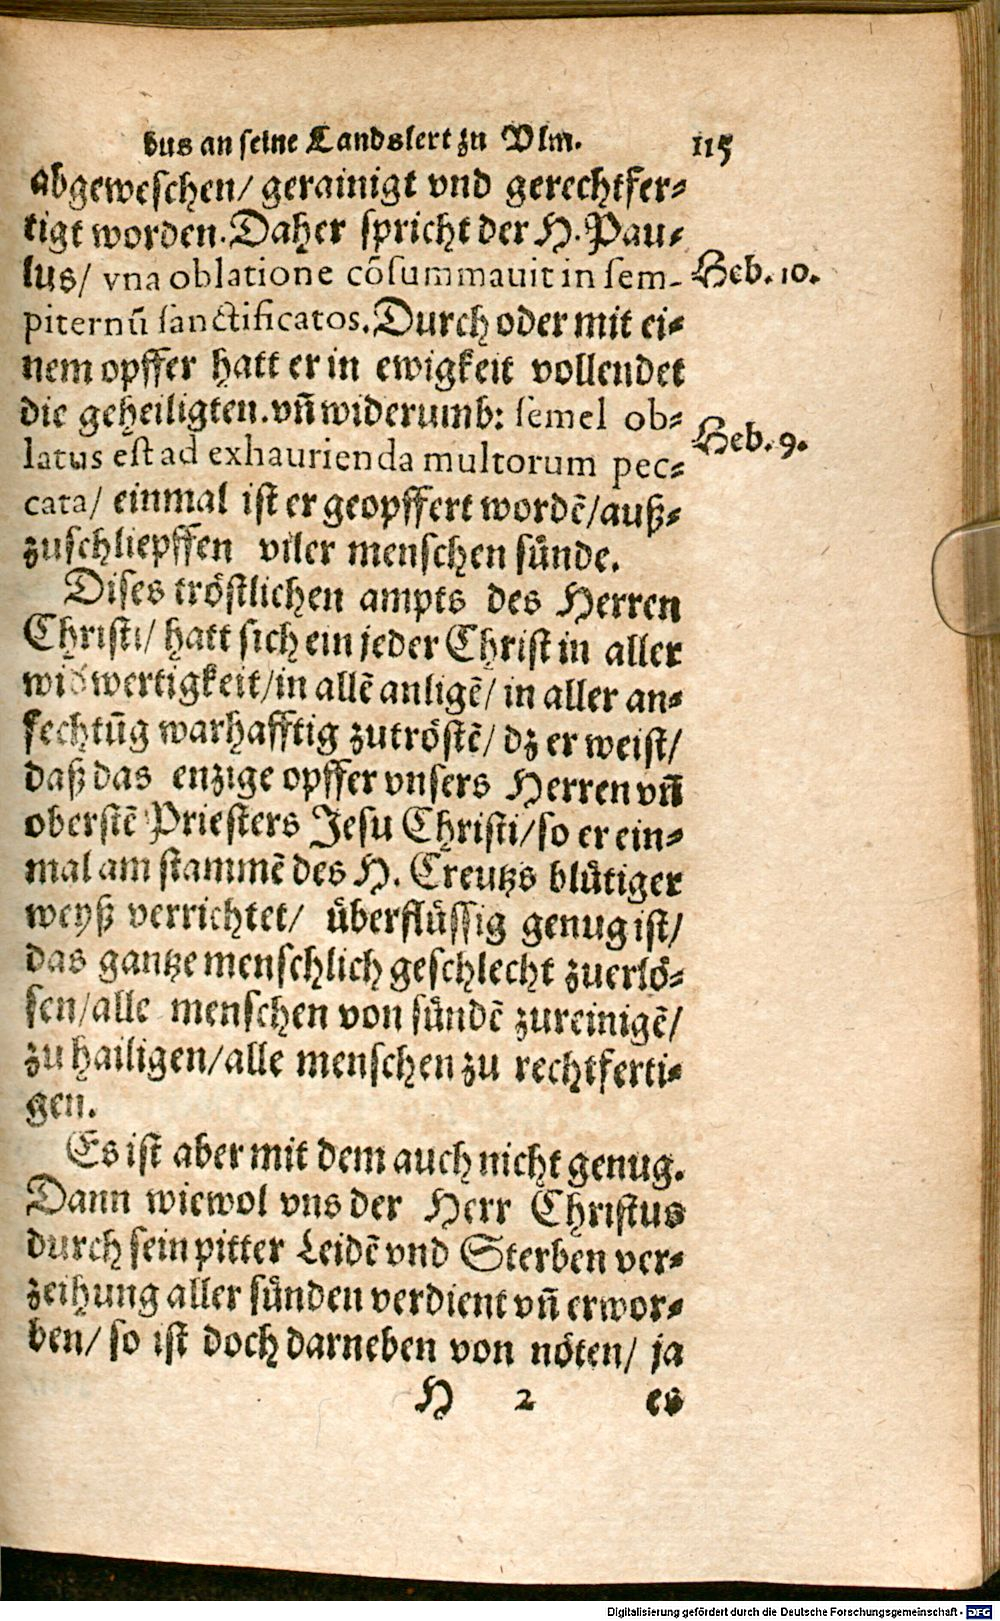 bus an seine Landslert zu Vlm. 115
abgeweschen/ gerainigt vnd gerechtfer-
tigt worden. Daher spricht der H. Pau-
lus/ vna oblatione cōsummauit in sem-
Heb. 10.
piternū sanctificatos. Durch oder mit ei-
nem opffer hatt er in ewigkeit vollendet
die geheiligten. vñ widerumb: semel ob-
Heb. 9.
latus est ad exhaurienda multorum pec-
cata/ einmal ist er geopffert wordē/ auß-
zuschliepffen viler menschen sünde.
Dises tröstlichen ampts des Herren
Christi/ hatt sich ein jeder Christ in aller
widwertigkeit/ in allē anligē/ in aller an-
fechtūg warhafftig zutröstē/ dz er weist/
daß das enzige opffer vnsers Herren vñ
oberstē Priesters Jesu Christi/ so er ein-
mal am stammē des H. Creutzs blütiger
weyß verrichtet/ überflüssig genug ist/
das gantze menschlich geschlecht zuerlö-
sen/ alle menschen von sündē zureinigē/
zu hailigen/ alle menschen zu rechtferti-
gen.
Es ist aber mit dem auch nicht genug.
Dann wiewol vns der Herr Christus
durch sein pitter Leidē vnd Sterben ver-
zeihung aller sünden verdient vñ erwor-
ben/ so ist doch darneben von nöten/ ja
H 2 es
Digitalisierung gefördert durch die Deutsche Forschungsgemeinschaft - DFG